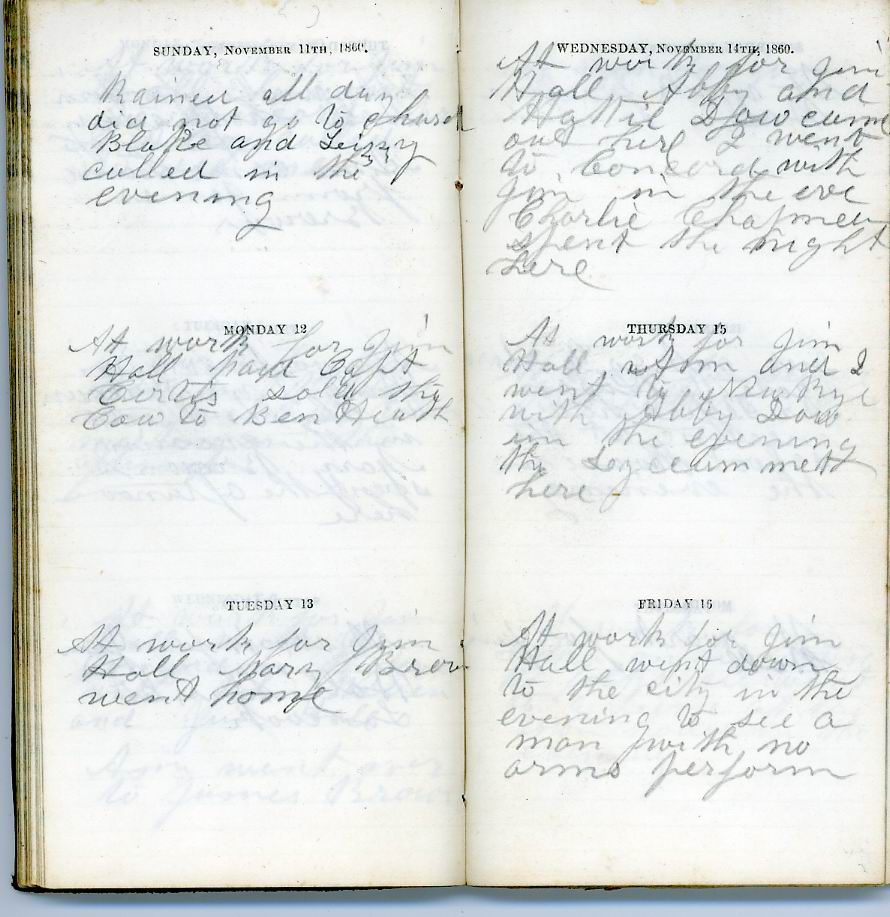 SUNDAY, NOVEMBER 11TH, 1860.
Rained all day
did not go to church
Blake and Lizzy
called in the
evening
MONDAY 12
At work for Jim
Hall paid Capt
Curtis sold the
Cow to Ben Heath
TUESDAY 13
At work for Jim
Hall Mary Brow
went home
WEDNESDAY, NOVEMBER 14TH, 1860.
At work for Jim
Hall Abby and
Hattie Dow came
out here I went
to Concord with
Jim in the eve
Charlie Chapman
spent the night
here
THURSDAY 15
At work for Jim
Hall Tom and I
went to
with Abby Dow
in the evening
the Lyceum mett
here
FRIDAY 16
At work for Jim
Hall went down
to the city in the
evening to see a
man with no
arms perform